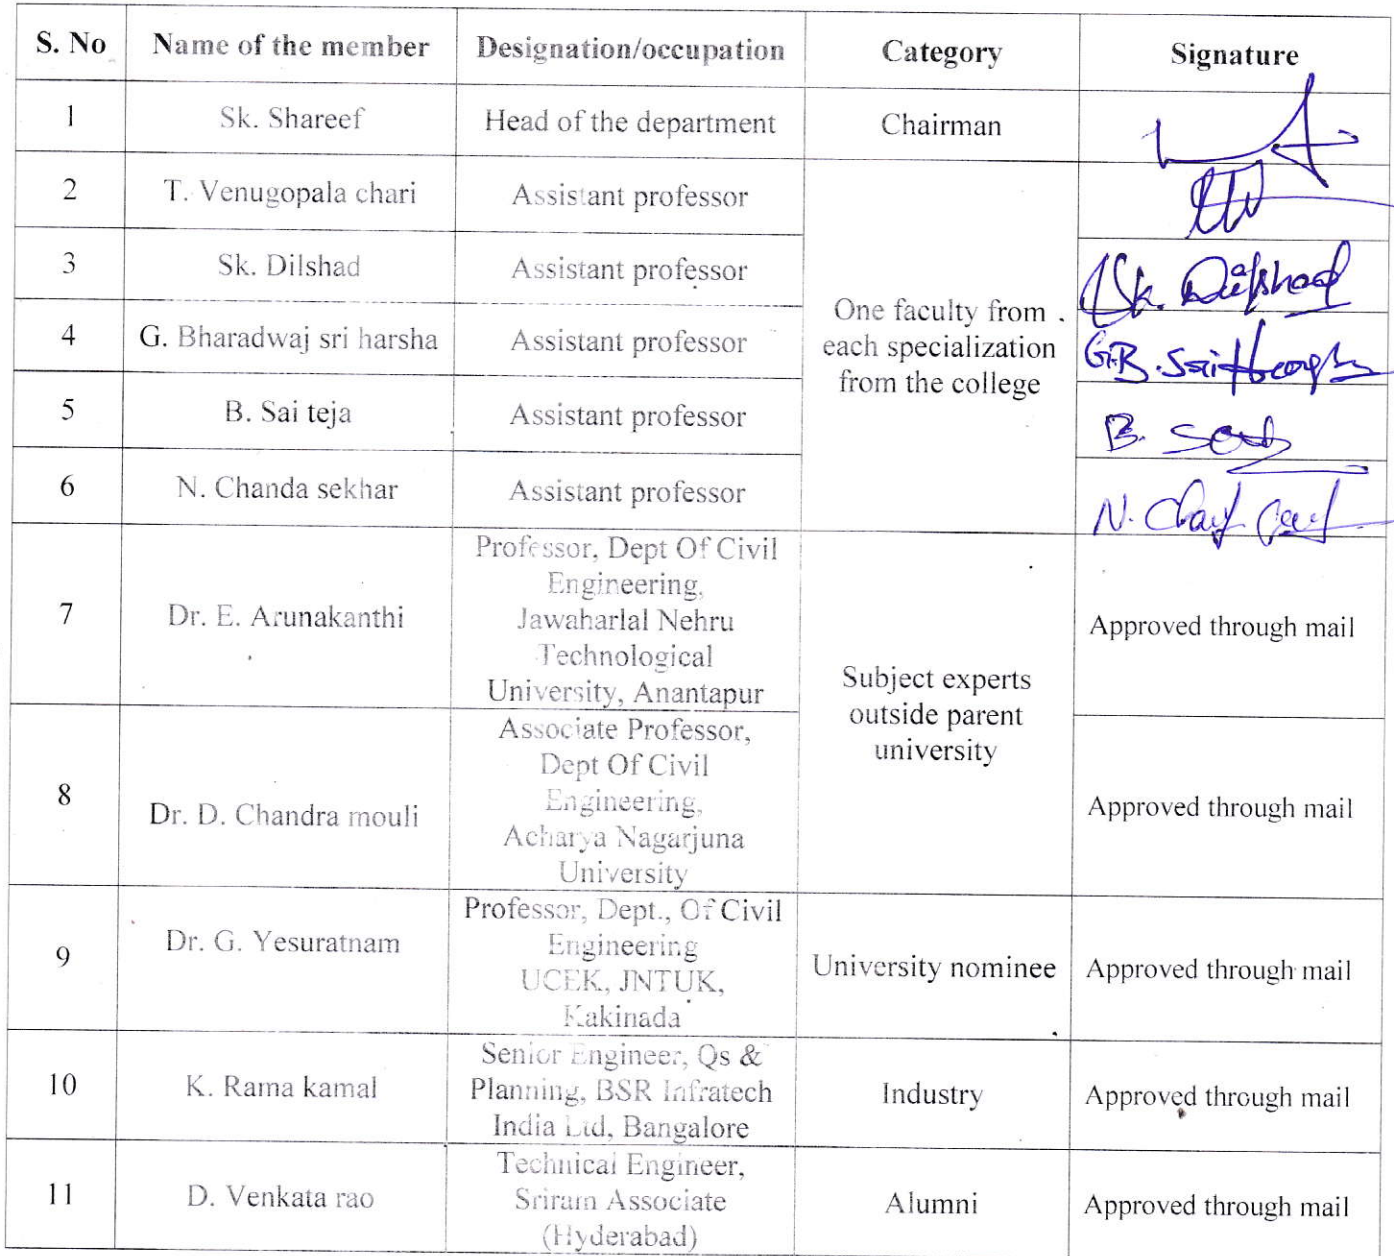 S. No Name of the member Designation/occupation Category Signature
1 Sk. Shareef Head of the department Chairman
2 T. Venugopala chari Assistant professor
3 Sk. Dilshad Assistant professor Sk. Dilshad
One faculty from
each specialization
from the college
4 G. Bharadwaj sri harsha Assistant professor G.B.
5 B. Sai teja Assistant professor B.
6 N. Chanda sekhar Assistant professor N.
7 Dr. E. Arunakanthi
Professor, Dept Of Civil
Engineering,
Jawaharlal Nehru
Technological
University, Anantapur
Subject experts
outside parent
university
Approved through mail
8 Dr. D. Chandra mouli
Associate Professor,
Dept Of Civil
Engineering,
Acharya Nagarjuna
University
Approved through mail
9 Dr. G. Yesuratnam
Professor, Dept., Of Civil
Engineering
UCEK, JNTUK,
Kakinada
University nominee
Approved through mail
10 K. Rama kamal
Senior Engineer, Qs &
Planning, BSR Infratech
India Ltd, Bangalore
Industry
Approved through mail
11 D. Venkata rao
Technical Engineer,
Sriram Associate
(Hyderabad)
Alumni
Approved through mail